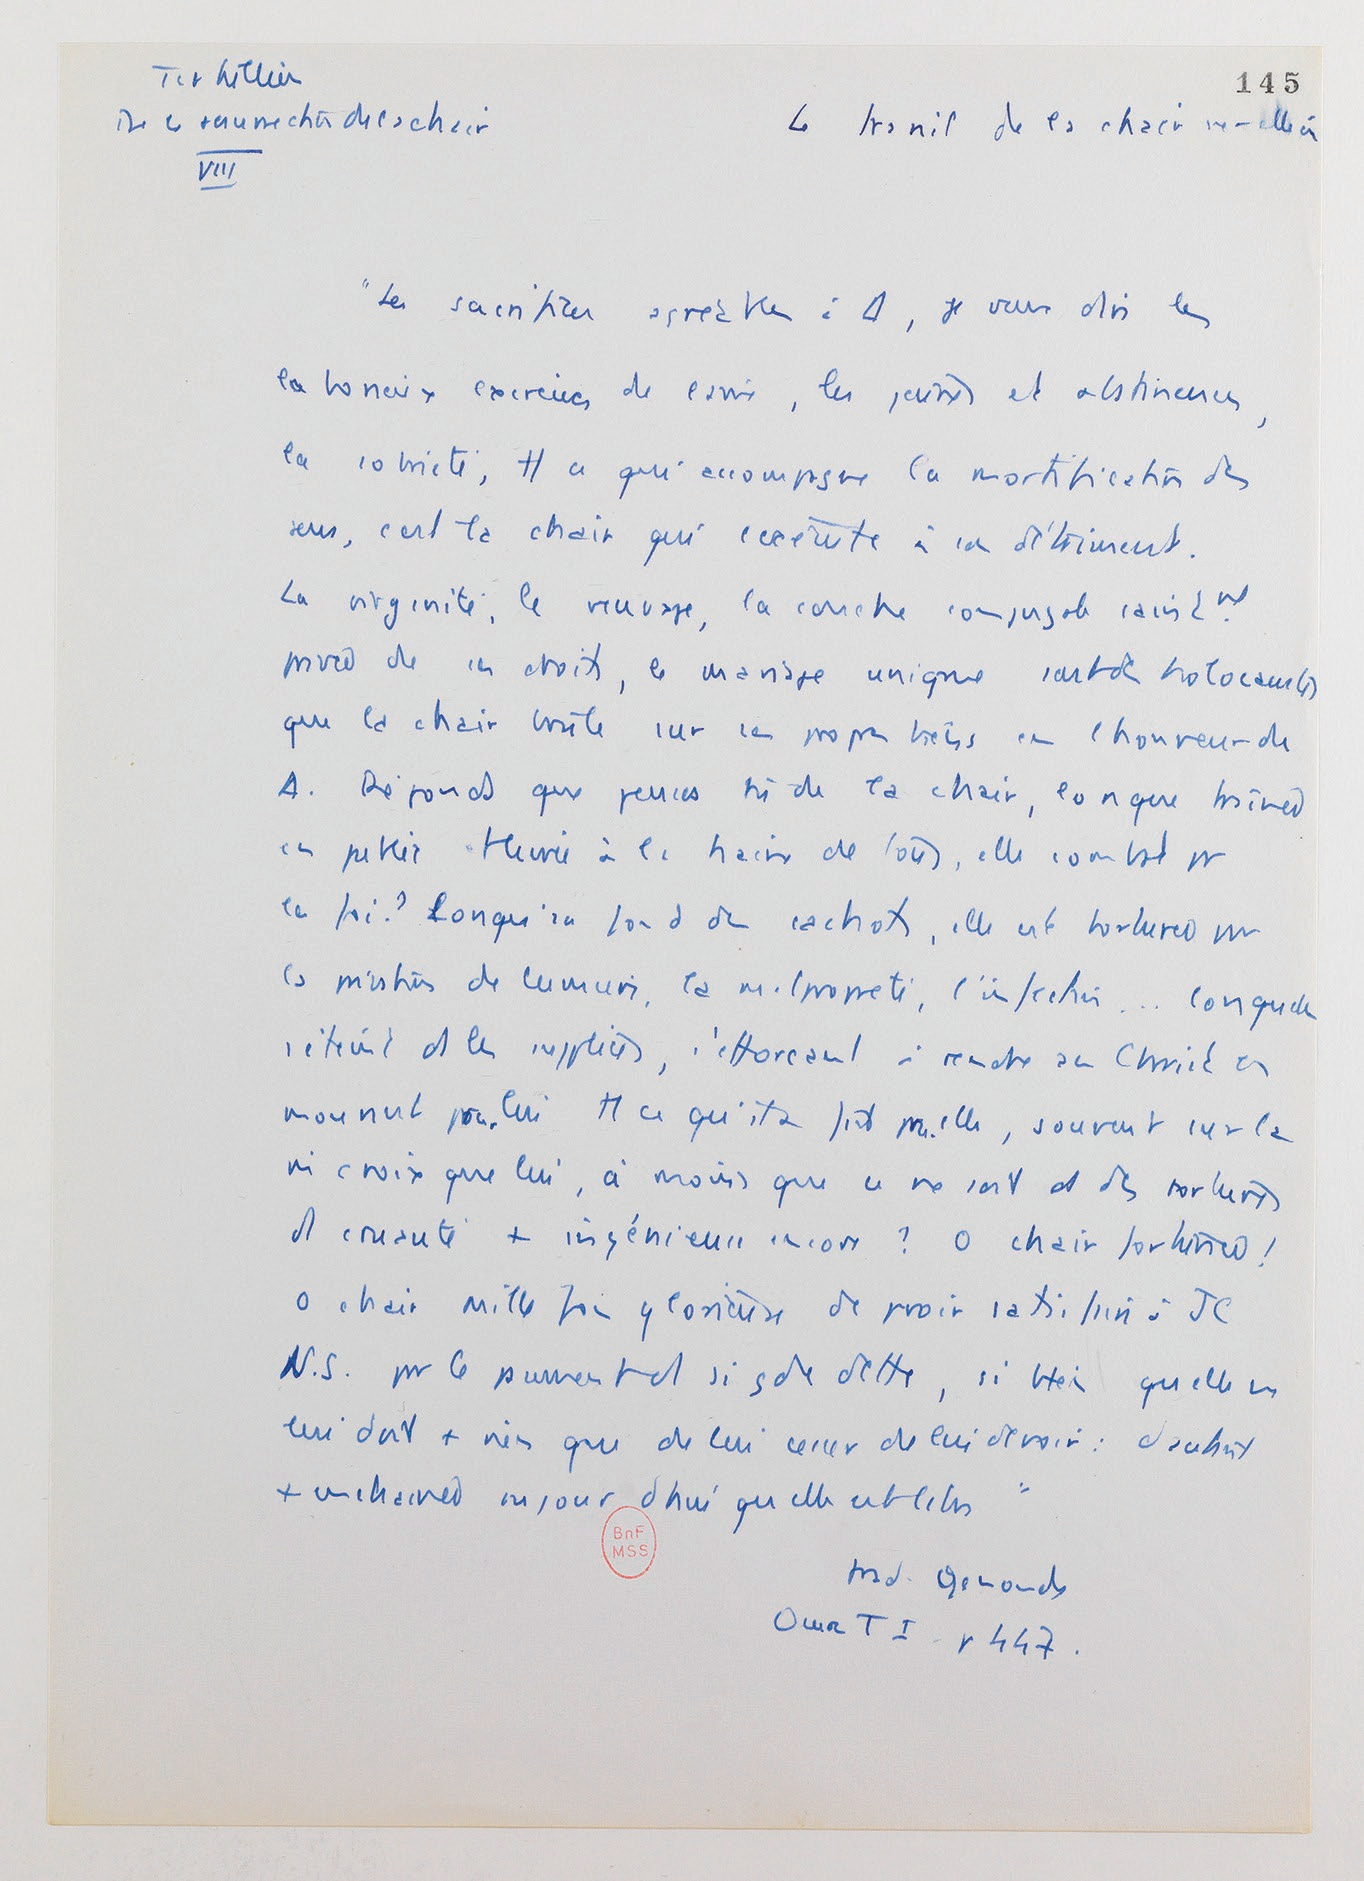 145
Tertullien
De la résurrection de la chair
Le travail de la chair
VIII
"Les sacrifices agréables à Δ, je veux dire les
laborieux exercices de l'âme, les jeûnes et abstinences,
la sobriété, tt ce qui accompagne la mortification des
sens, c'est la chair qui l'exécute à son détriment.
La virginité, le veuvage, la couche conjugale
privée de ses droits, le mariage unique sont des holocaustes
que la chair brûle sur ses propres biens en l'honneur de
Δ. Réponds que penses tu de la chair, lorsque traînée
en public et livrée à la haine de tous, elle combat pr
la foi? Lorsqu'au fond des cachots, elle est torturée par
la privation de lumière, la malpropreté, l'infection... lorsqu'elle
s'éteint ds les supplices, s'efforçant à rendre au Christ en
mourant pour lui tt ce qu'il a fait pr elle, souvent sur la
m croix que lui, à moins que ce ne soit ds des tortures
d cruauté + ingénieuse encore? O chair fortunée!
O chair mille fois glorieuse de pvoir satisfaire à JC
N.S. pr le paiement d si gde dette, si bien qu'elle ne
lui doit + rien que de lui cesser de lui devoir: d'autant
+ enchaînée aujourd'hui qu'elle est libre"
BnF
MSS
trad. Genoude
Œuvres T I p 447.